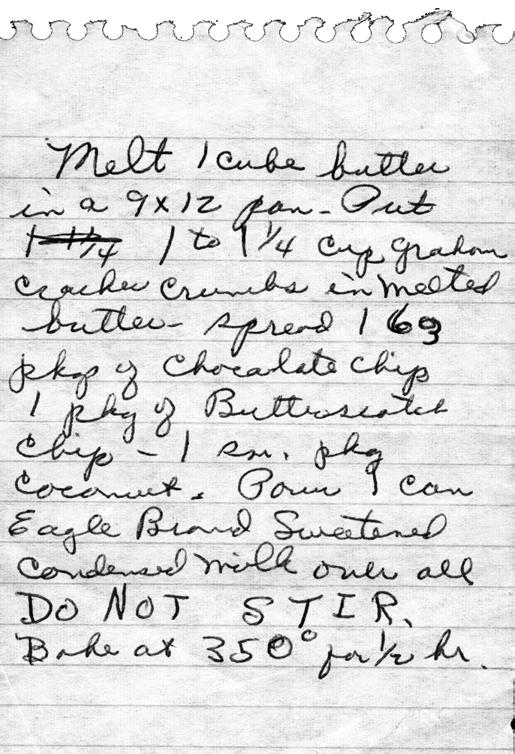 Melt 1 cube butter
in a 9x12 pan - Put
1 to 1 1/4 cup graham
cracker crumbs in melted
butter - spread 1 6oz
pkg of Chocolate chip
1 pkg of Butterscotch
chip - 1 sm. pkg
coconut. Pour 1 can
Eagle Brand Sweetened
Condensed milk over all
DO NOT STIR.
Bake at 350° for 1/2 hr.